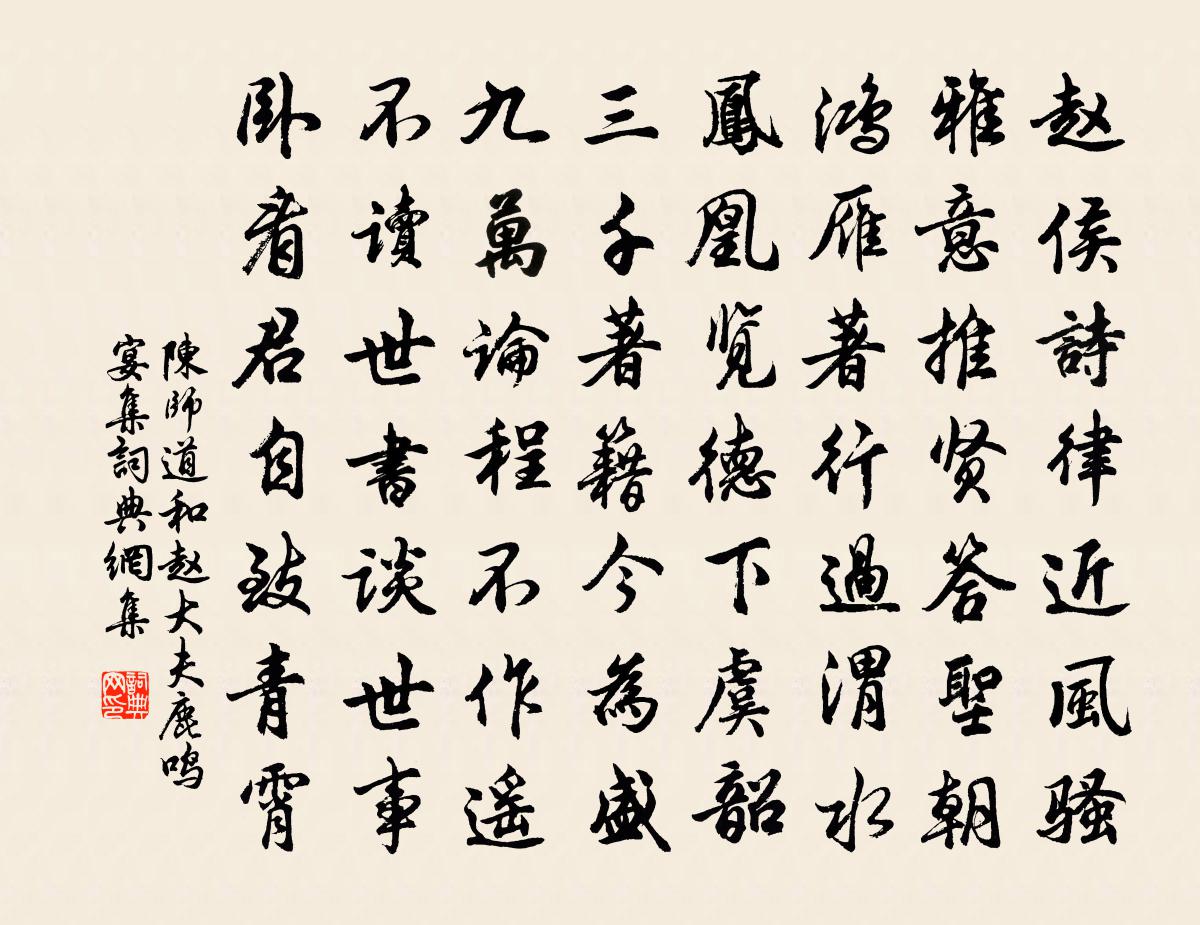 赵侯詩律近風骚
雅意推贤答聖朝
鸿雁著行過渭水
鳳凰览德下虞韶
三千著籍今為盛
九萬論程不作遥
不读世書谈世事
卧看君自致青霄
陳師道和赵大夫鹿鸣
宴集詞典網集
詞典网印